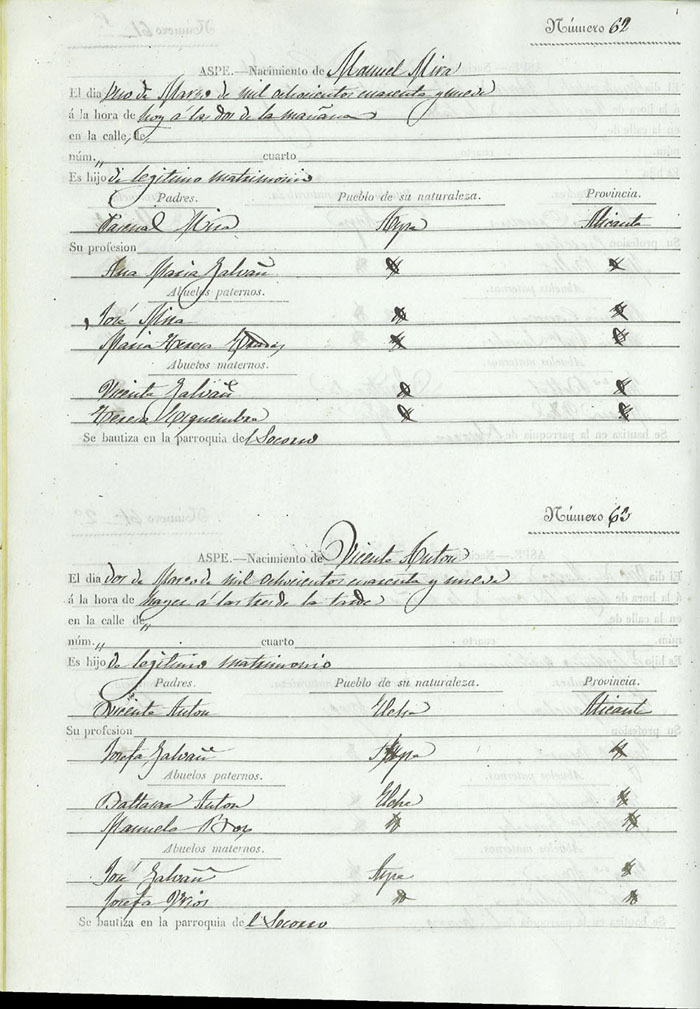 Número 62
ASPE.—Nacimiento de Manuel Mira
El dia uno de Marzo de mil ochocientos cuarenta y nueve
á la hora de hoy á las dos de la mañana
en la calle de
núm. „ cuarto
Es hijo de legitimo matrimonio
Padres. Pueblo de su naturaleza. Provincia.
Pascual Mira Aspe Alicante
Su profesion
Ana Maria Galvañ
Abuelos paternos.
José Mira
Maria Teresa
Abuelos maternos.
Vicente Galvañ
Teresa
Se bautiza en la parroquia del Socorro
Número 63
ASPE.—Nacimiento de Vicente Anton
El dia dos de Marzo de mil ochocientos cuarenta y nueve
á la hora de á las tres de la tarde
en la calle de „
núm. „ cuarto
Es hijo de legitimo matrimonio
Padres. Pueblo de su naturaleza. Provincia.
Vicente Anton Elche Alicante
Su profesion
Josefa Galvañ Aspe
Abuelos paternos.
Baltasar Anton Elche
Manuela
Abuelos maternos.
José Galvañ Aspe
Josefa
Se bautiza en la parroquia del Socorro